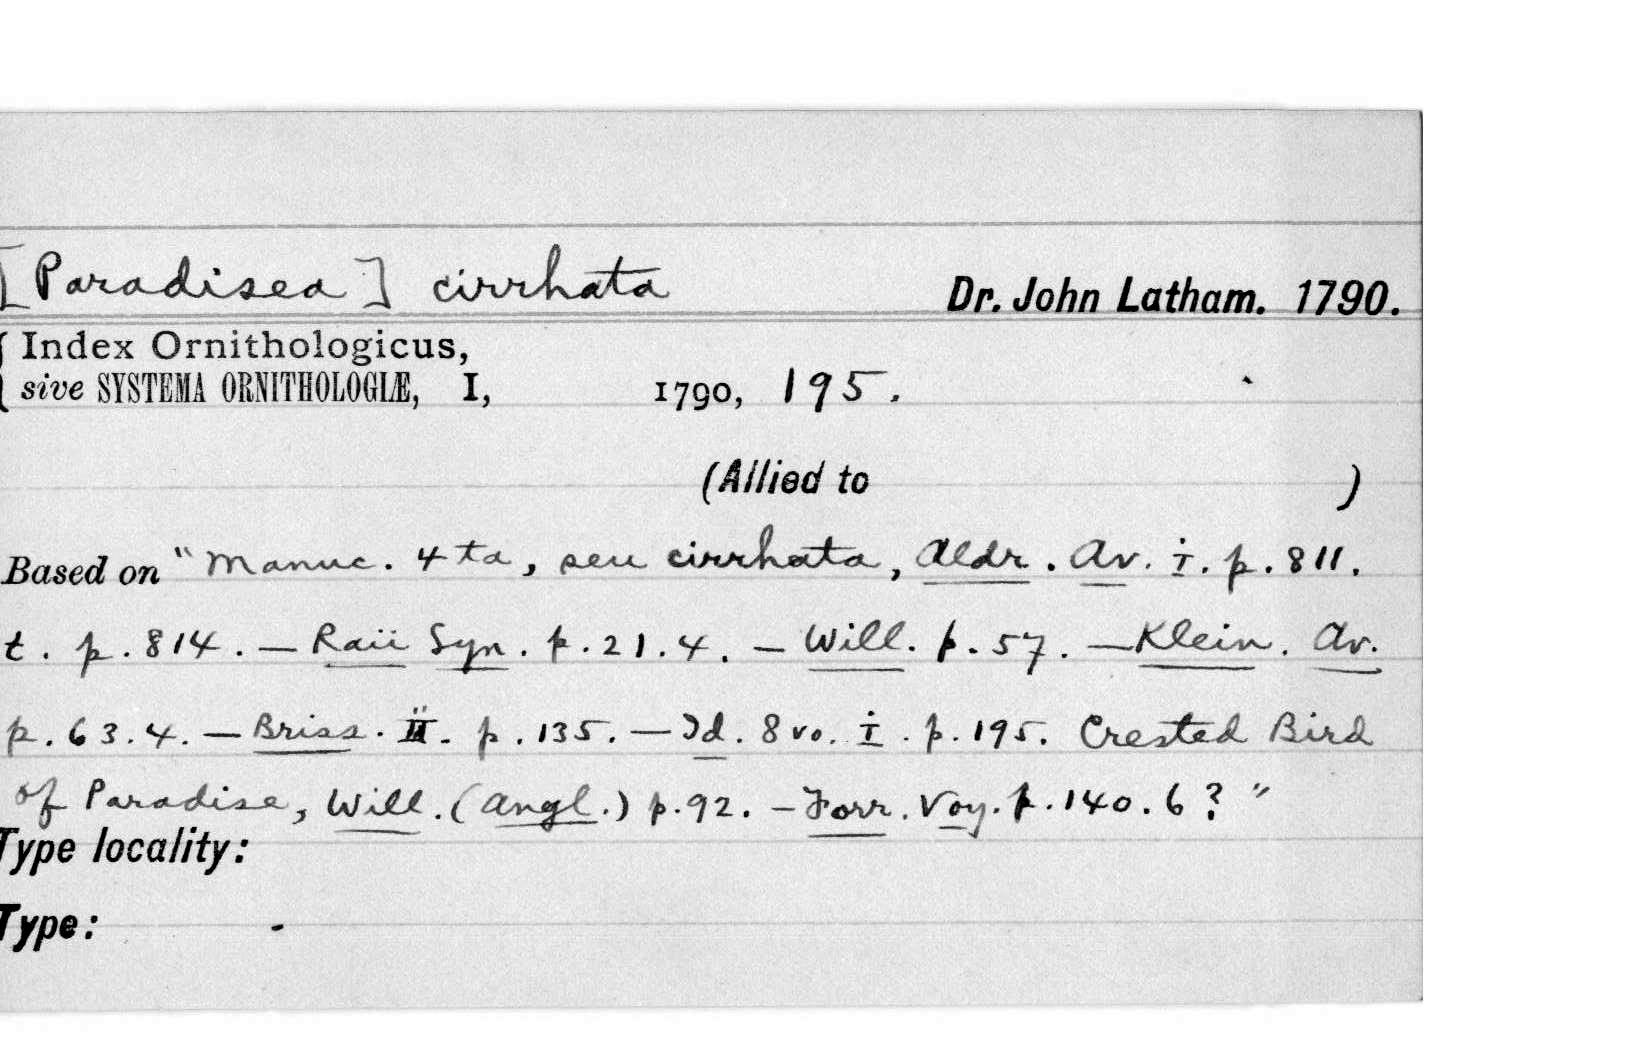 [Paradisea] cirrhata Dr. John Latham. 1790.
Index Ornithologicus,
sive SYSTEMA ORNITHOLOGIÆ, I, 1790, 195.
(Allied to )
Based on "Manuc. 4ta, seu cirrhata, Aldr. Av. i. p. 811.
t. p. 814. — Raii Syn. p. 21. 4. — Will. p. 57. — Klein. Av.
p. 63. 4. — Briss. ii. p. 135. — Id. 8vo. i. p. 195. Crested Bird
of Paradise, Will. (Angl.) p. 92. — Forr. Voy. p. 140. 6? "
Type locality:
Type: -